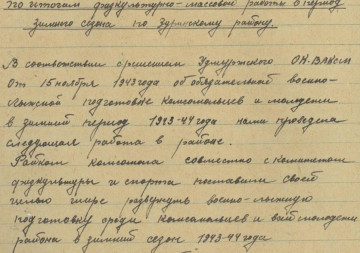 по итогам физкультурно-массовой работы в период
зимнего сезона по Зуринскому району.
В соответствии с решением Удмуртского ОК.ВЛКСМ
от 15 ноября 1943 года об обязательной военно-
лыжной подготовке комсомольцев и молодежи
в зимний период 1943-44 года нами проведена
следующая работа в районе.
Райком комсомола совместно с комитетом
физкультуры и спорта поставили своей
целью шире развернуть военно-лыжную
подготовку среди комсомольцев и всей молодежи
района в зимний сезон 1943-44 года